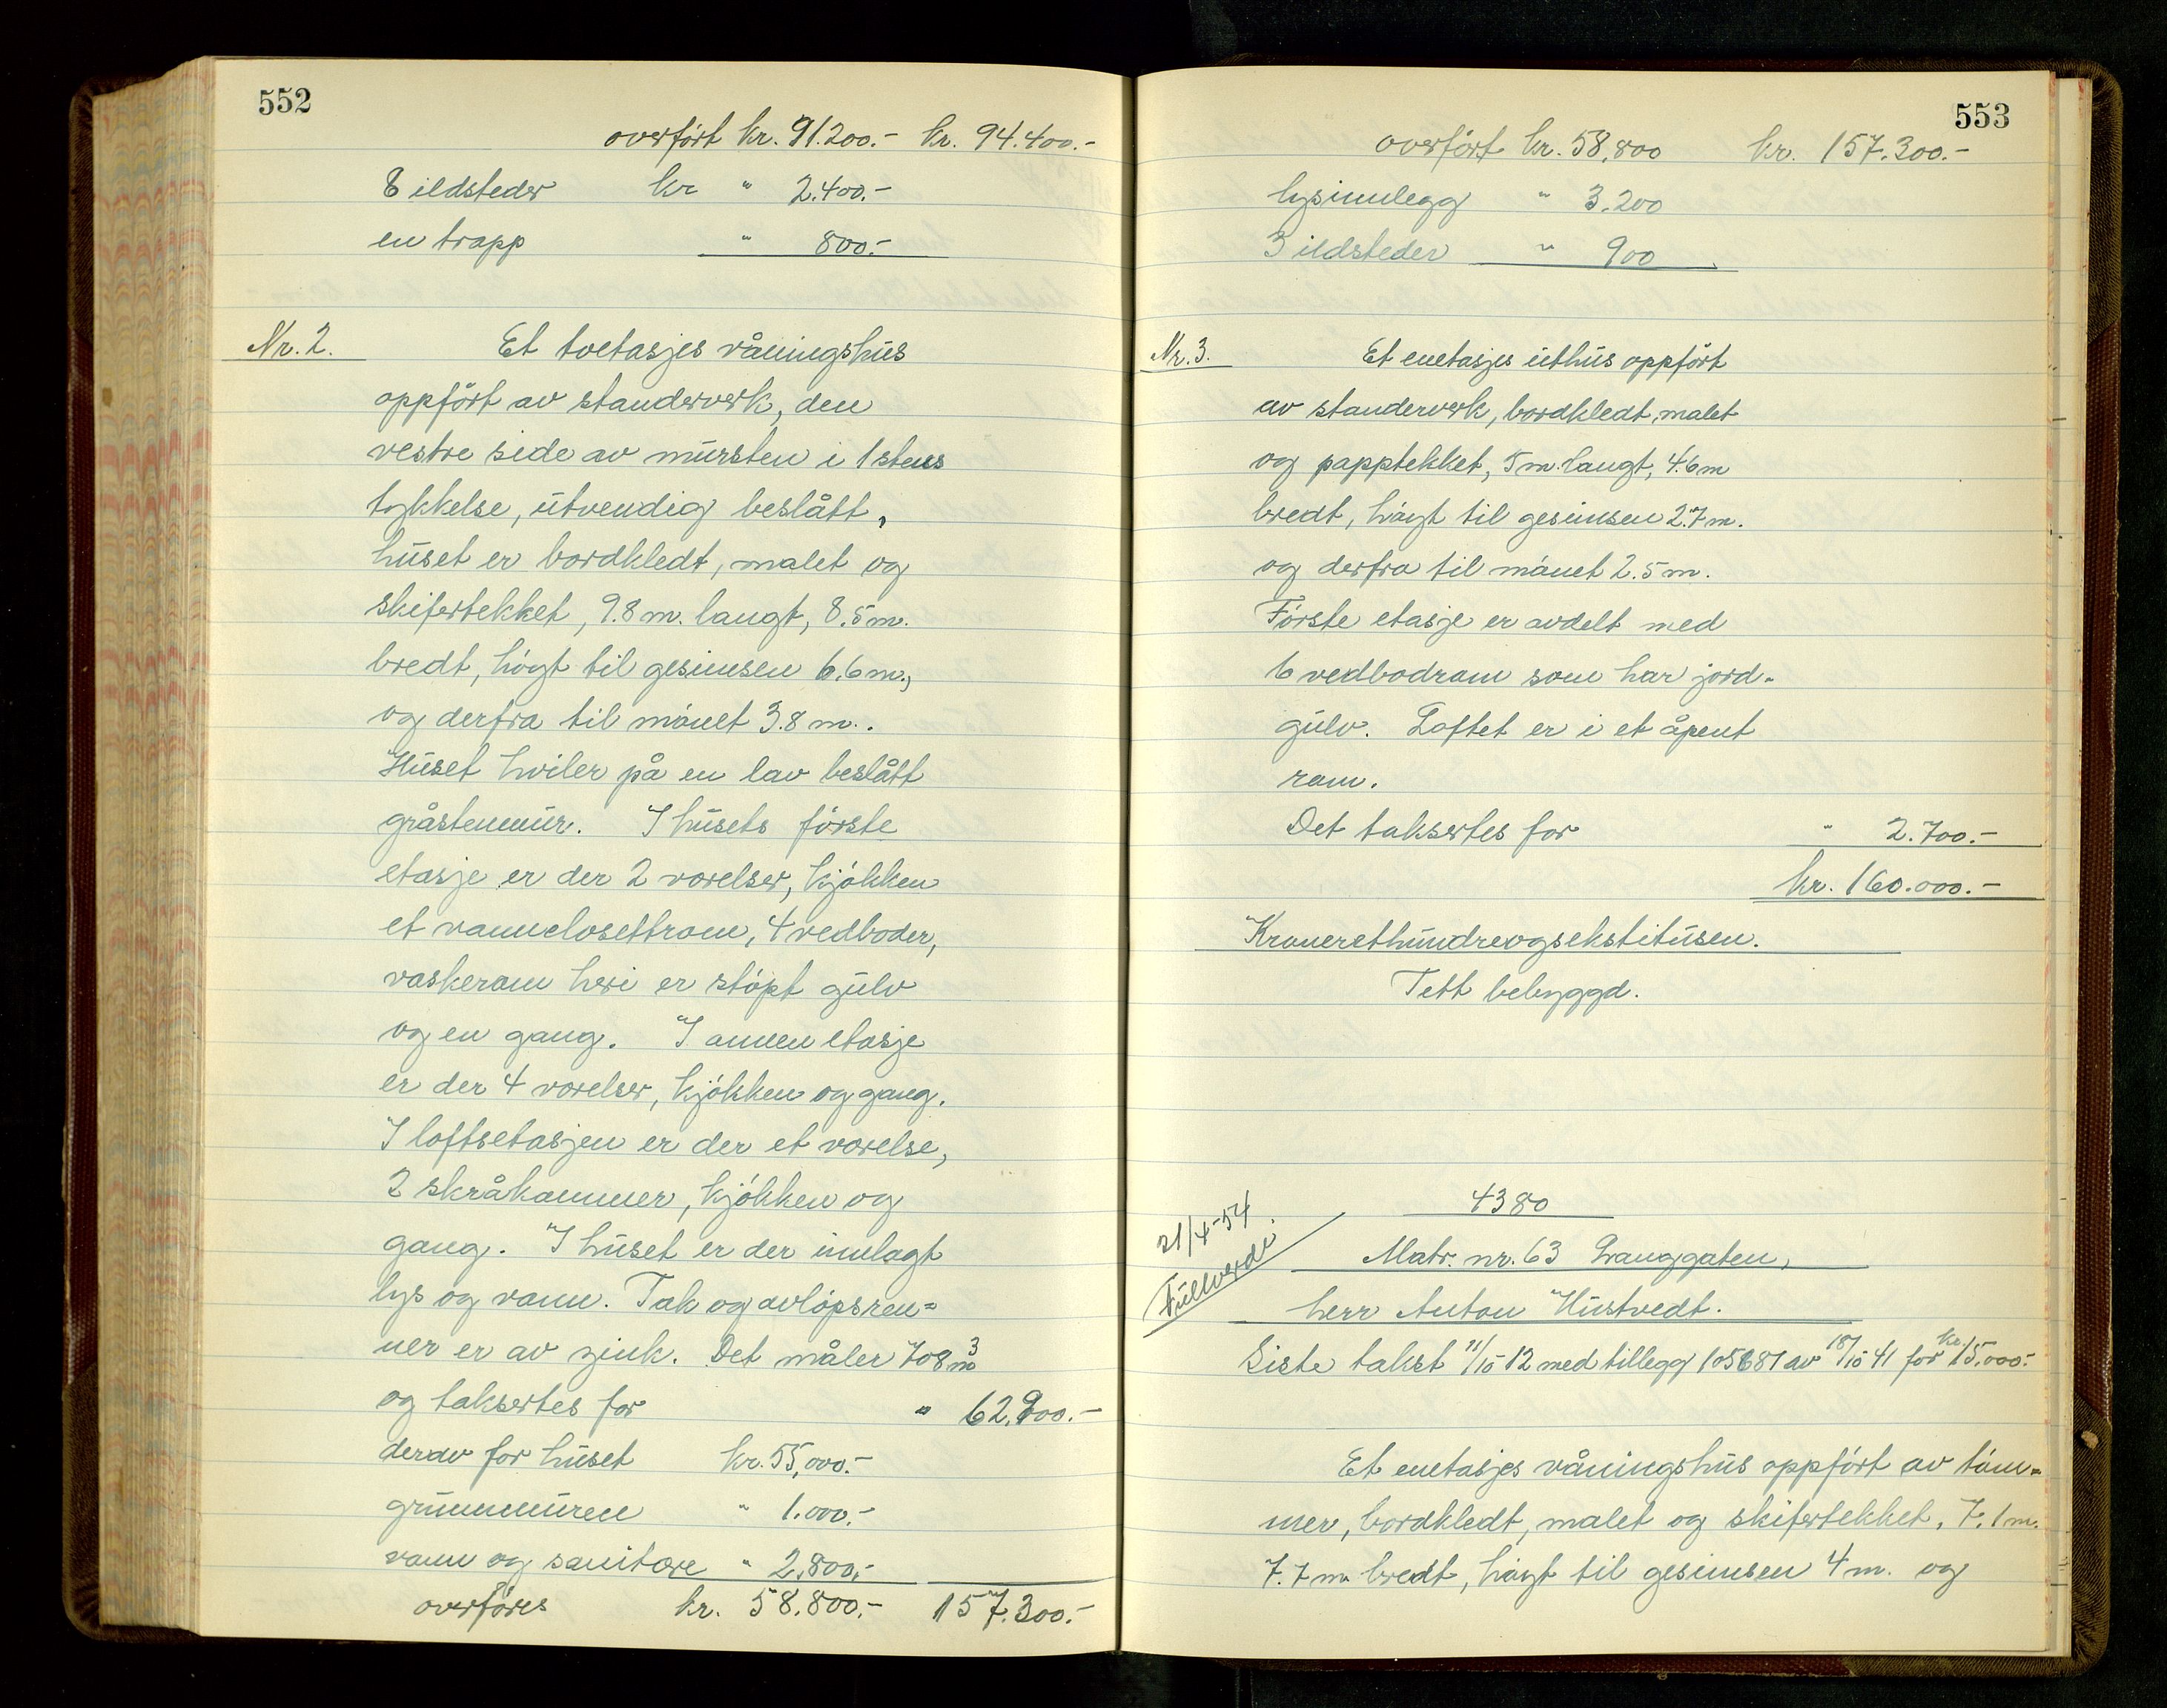 552
overført kr. 91.200.- kr. 94.400.-
8 ildsteder kr " 2.400.-
en trapp " 800.-
Nr. 2. Et toetasjes våningshus
oppført av standerverk, den
vestre side av mursten i 1 stens
tykkelse, utvendig beslått,
huset er bordkledt, malet og
skifertekket, 9.8 m. langt, 8.5 m.
bredt, høgt til gesimsen 6.6 m.,
og derfra til mønet 3.8 m..
Huset hviler på en lav beslått
gråstenmur. I husets første
etasje er der 2 værelser, kjøkken
et vannclosettrom, 4 vedboder,
vaskerom heri er støpt gulv
og en gang. I annen etasje
er der 4 værelser, kjøkken og gang.
I loftsetasjen er der et værelse,
2 skråkammer, kjøkken og
gang. I huset er der innlagt
lys og vann. Tak og avløpsren=
ner er av zink. Det måler 708 m³
og taksertes for " 62.900.-
derav for huset kr. 55,000.-
grunnmuren " 1.000.-
vann og sanitære " 2.800,-
overføres kr. 58.800,- 157.300.-
553
overført kr. 58,800 kr. 157.300.-
lysinnlegg " 3.200
3 ildsteder " 900
Nr. 3. Et enetasjes uthus oppført
av standerverk, bordkledt, malet
og papptekket, 5 m. langt, 4.6 m
bredt, høgt til gesimsen 2.7 m.
og derfra til mønet 2.5 m.
Første etasje er avdelt med
6 vedbodrom som har jord-
gulv. Loftet er i et åpent
rom.
Det taksertes for " 2.700.-
kr. 160.000.-
Kronerethundreogsekstitusen.
Tett bebyggd.
4380
21/4-54
Fullverdi.
Matr. nr. 63 Langgaten,
herr Anton Hustvedt.
Siste takst 11/10 12 med tillegg 105681 av 18/10 41 for kr. 15.000.-
Et enetasjes våningshus oppført av tøm=
mer, bordkledt, malet og skifertekket, 7.1 m.
7.7 m bredt, høgt til gesimsen 4 m. og